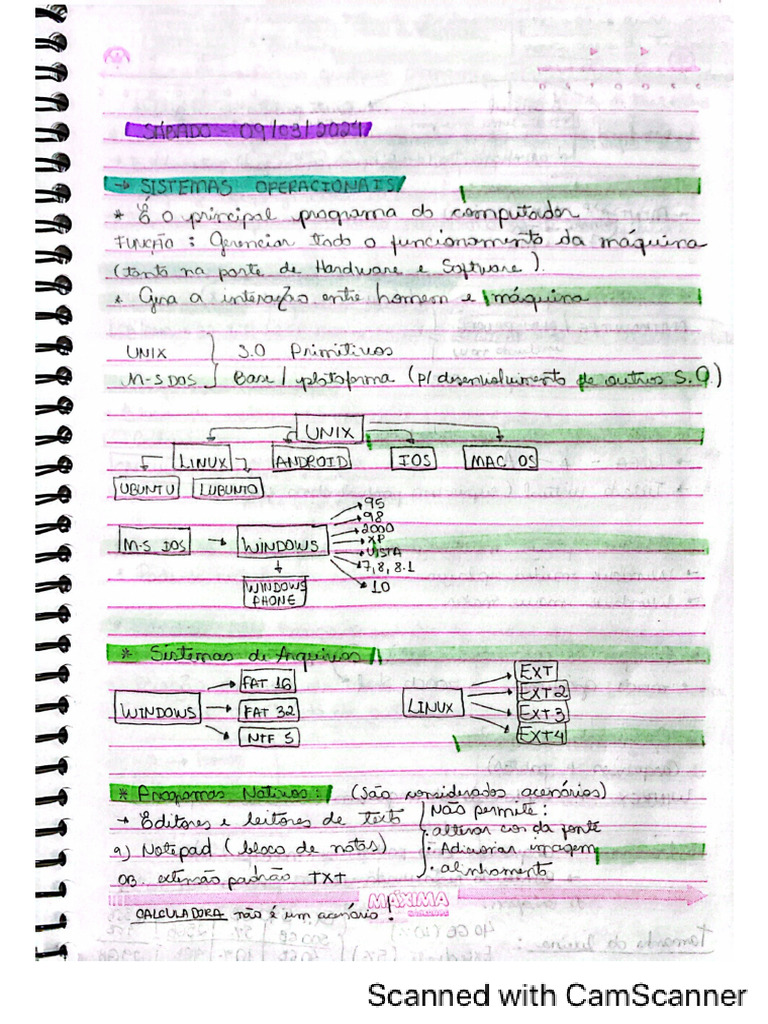 SÁBADO - 09/03/2024
→ SISTEMAS OPERACIONAIS
* É o principal programa do computador
FUNÇÃO: Gerenciar todo o funcionamento da máquina
(tanto na parte de Hardware e Software).
* Gera a interação entre homem e máquina
UNIX } S.O Primitivos
M-S DOS } Base / plataforma (p/ desenvolvimento de outros S.O)
UNIX
LINUX ANDROID IOS MAC OS
UBUNTU LUBUNTO
95
98
2000
M-S DOS → WINDOWS XP
VISTA
7, 8, 8.1
WINDOWS PHONE 10
* Sistemas de Arquivos
WINDOWS FAT 16 FAT 32 NTF S
LINUX EXT EXT2 EXT3 EXT4
* Programas Nativos: (São considerados acenários)
→ Editores e leitores de texto Não permite:
a) Notepad (bloco de notas) · alterar cor da fonte
· Adicionar imagem
OB. extensão padrão TXT · alinhamento
MÁXIMA
CALCULADORA não é um acenário!
Scanned with CamScanner